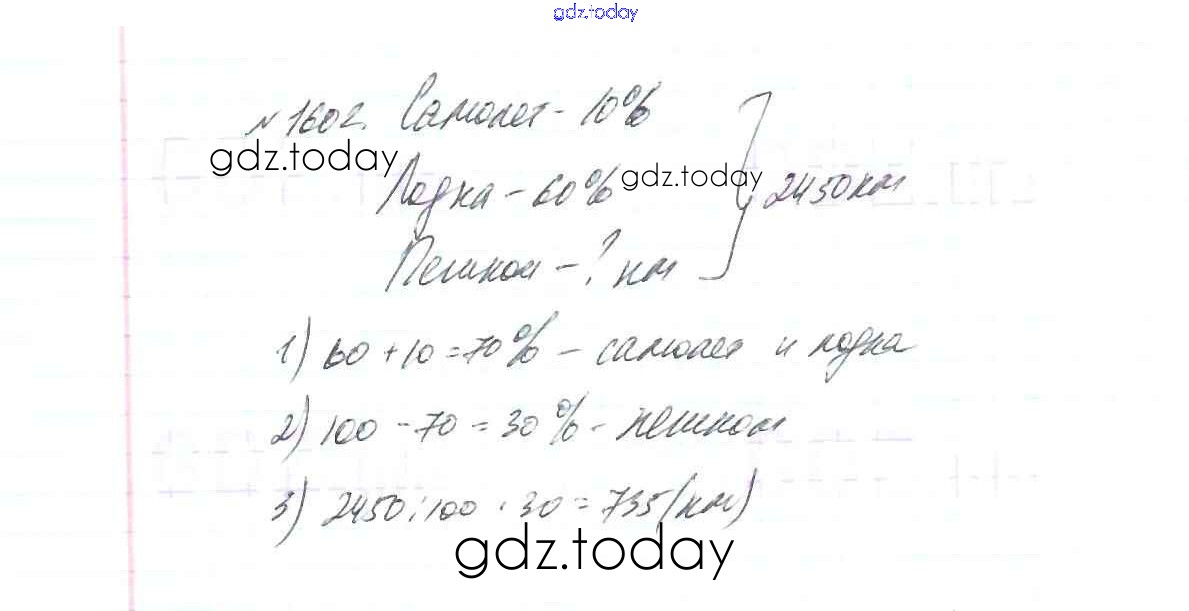 gdz.today
№1602. Самолет - 10%
gdz.today
Лодка - 60%
gdz.today
2450 км
Пешком - ? км
1) 60 + 10 = 70% - самолет и лодка
2) 100 - 70 = 30% - пешком
3) 2450 : 100 · 30 = 735 (км)
gdz.today